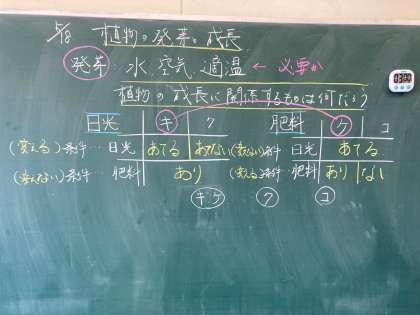 5/8 植物の発芽と成長
発芽 水、空気、適温 ← 必要か
植物の成長に関係するものは何だろう
日光 キ ク 肥料 ケ コ
(変える)条件…日光 あてる あてない (変えない)条件…日光 あてる
(変えない)条件…肥料 あり (変える)条件…肥料 あり ない
キ・ケ ク コ